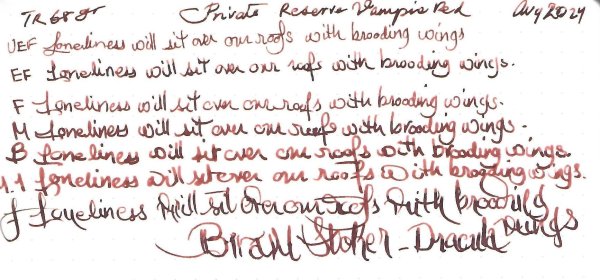 TR 68 gr Private Reserve Vampire Red Aug 2024
UEF Loneliness will sit over our roofs with brooding wings
EF Loneliness will sit over our roofs with brooding wings.
F Loneliness will sit over our roofs with brooding wings.
M Loneliness will sit over our roofs with brooding wings.
B Loneliness will sit over our roofs with brooding wings.
1.1 Loneliness will sit over our roofs with brooding wings.
J Loneliness will sit over our roofs with brooding
wings
Bram Stoker - Dracula